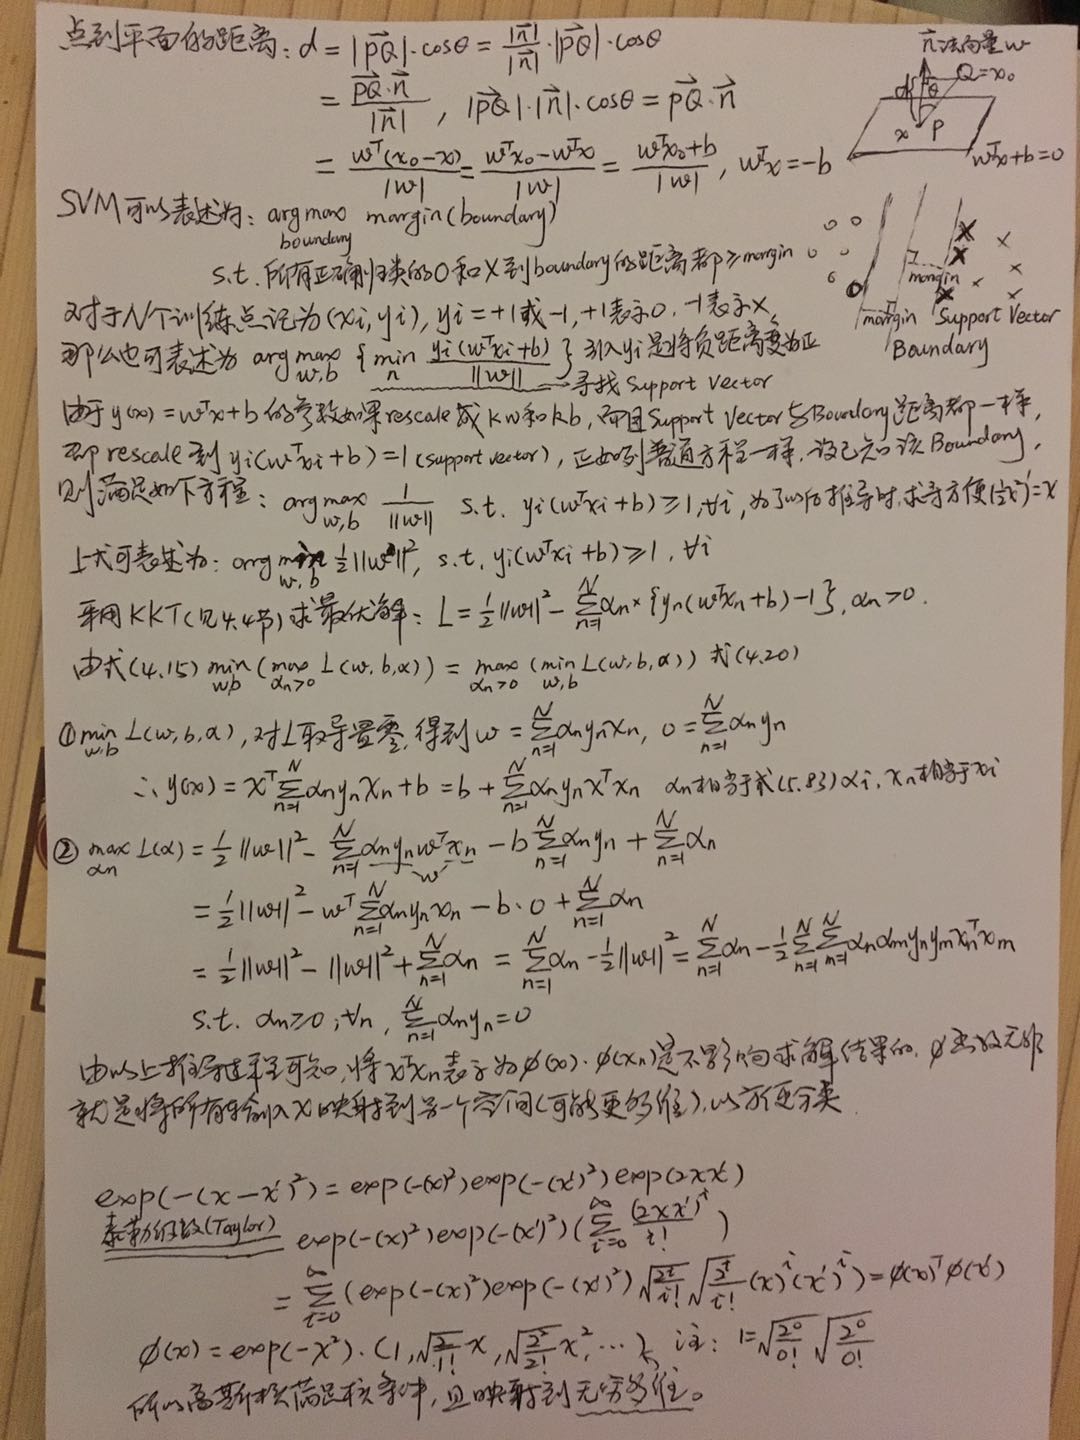 点到平面的距离: d = |PQ→|·cosθ = |n→|/|n→| ·|PQ→|·cosθ
= PQ→·n→/|n→| , |PQ→|·|n→|·cosθ = PQ→·n→
= wᵀ(x₀-x)/|w| = (wᵀx₀-wᵀx)/|w| = (wᵀx₀+b)/|w| , wᵀx = -b
n→法向量w
Q=x₀
d θ
x P
wᵀx+b=0
SVM可以表述为: arg max_boundary margin(boundary)
s.t. 所有正确归类的O和X到boundary的距离都≥margin
margin
margin Support Vector
Boundary
对于N个训练点记为(xi, yi), yi = +1或-1, +1表示O, -1表示X,
那么也可表述为 arg max_w,b {min_n yi(wᵀxi+b)/||w||} 引入yi是将负距离变为正
寻找Support Vector
由于y(x) = wᵀx+b的参数如果rescale成kw和kb, 而且Support Vector与Boundary距离都一样,
即rescale到yi(wᵀxi+b)=1(support vector), 正如到普通方程一样. 设已知该Boundary,
则满足如下方程: arg max_w,b 1/||w|| s.t. yi(wᵀxi+b)≥1, ∀i, 为了以后推导时, 求导方便(½x²)'=x
上式可表述为: arg min_w,b ½||w||², s.t. yi(wᵀxi+b)≥1, ∀i
采用KKT(见4.4节)求最优解: L = ½||w||² - Σ_{n=1}^N αn×{yn(wᵀxn+b)-1}, αn>0.
由式(4.15) min_w,b (max_αn>0 L(w,b,α)) = max_αn>0 (min_w,b L(w,b,α)) 式(4.20)
① min_w,b L(w,b,α), 对L取导置零, 得到w = Σ_{n=1}^N αnynxn, 0 = Σ_{n=1}^N αnyn
∴ y(x) = xᵀΣ_{n=1}^N αnynxn + b = b + Σ_{n=1}^N αnynxᵀxn αn相当于式(5.83)αi, xn相当于xi
② max_αn L(α) = ½||w||² - Σ_{n=1}^N αnynwᵀxn - bΣ_{n=1}^N αnyn + Σ_{n=1}^N αn
w
= ½||w||² - wᵀΣ_{n=1}^N αnynxn - b·0 + Σ_{n=1}^N αn
= ½||w||² - ||w||² + Σ_{n=1}^N αn = Σ_{n=1}^N αn - ½||w||² = Σ_{n=1}^N αn - ½Σ_{n=1}^N Σ_{m=1}^N αnαmynymxnᵀxm
s.t. αn≥0, ∀n, Σ_{n=1}^N αnyn=0
由以上推导过程可知, 将xᵀxn表示为φ(x)·φ(xn)是不影响求解结果的. φ函数无非
就是将所有输入x映射到另一个空间(可能更多维), 以方便分类.
exp(-(x-x')²) = exp(-(x)²)exp(-(x')²)exp(2xx')
泰勒级数(Taylor) exp(-(x)²)exp(-(x')²)(Σ_{i=0}^∞ (2xx')ⁱ/i!)
= Σ_{i=0}^∞ (exp(-(x)²)exp(-(x')²)√(2ⁱ/i!)√(2ⁱ/i!)(x)ⁱ(x')ⁱ) = φ(x)ᵀφ(x')
φ(x) = exp(-x²)·(1, √(2/1!)x, √(2²/2!)x², ...), 注: 1=√(2⁰/0!)√(2⁰/0!)
所以高斯核满足核条件, 且映射到无穷多维。